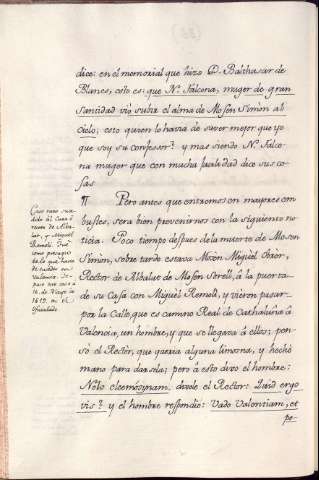 dice: en el memorial que hizo D. Balthasar de
Blanes, esto es: que N. Falcona, muger de gran
Santidad vio subir el alma de Mosén Simón al
Cielo; esto quien lo havia de saver mejor que yo
que soy su confessor? y mas siendo N. Falco
na muger que con mucha facilidad dice sus co
sas
¶ Pero antes que entremos en mayores em
bustes, sera bien prevenirnos con la siguiente no
ticia. Poco tiempo despues de la muerte de Mosen
Simón, sobre tarde estava Mosèn Miguel
Rector de Albalat de Mosén Sorell, á la puerta
de su Casa con Miguel Remolí, y vieron pasar
por la Calle, que es camino Real de Cathaluña a
Valencia, un hombre, y que se llegava á ellos; pen
sò el Rectòr, que queria alguna limosna, y hechó
mano para darsela; pero á esto dixo el hombre:
Nolo eleemosynam, dixole el Rector: Quid ergo
vis? y el hombre respondió: Vado Valentiam, et
pe-
Caso raro suce
dido al Cura ó
rector de Alba
lat, y Miguel
Remolí. Fué
como presagio
de lo que havia
de suceder en
Valencia.
3 de Marzo de
1619. en el